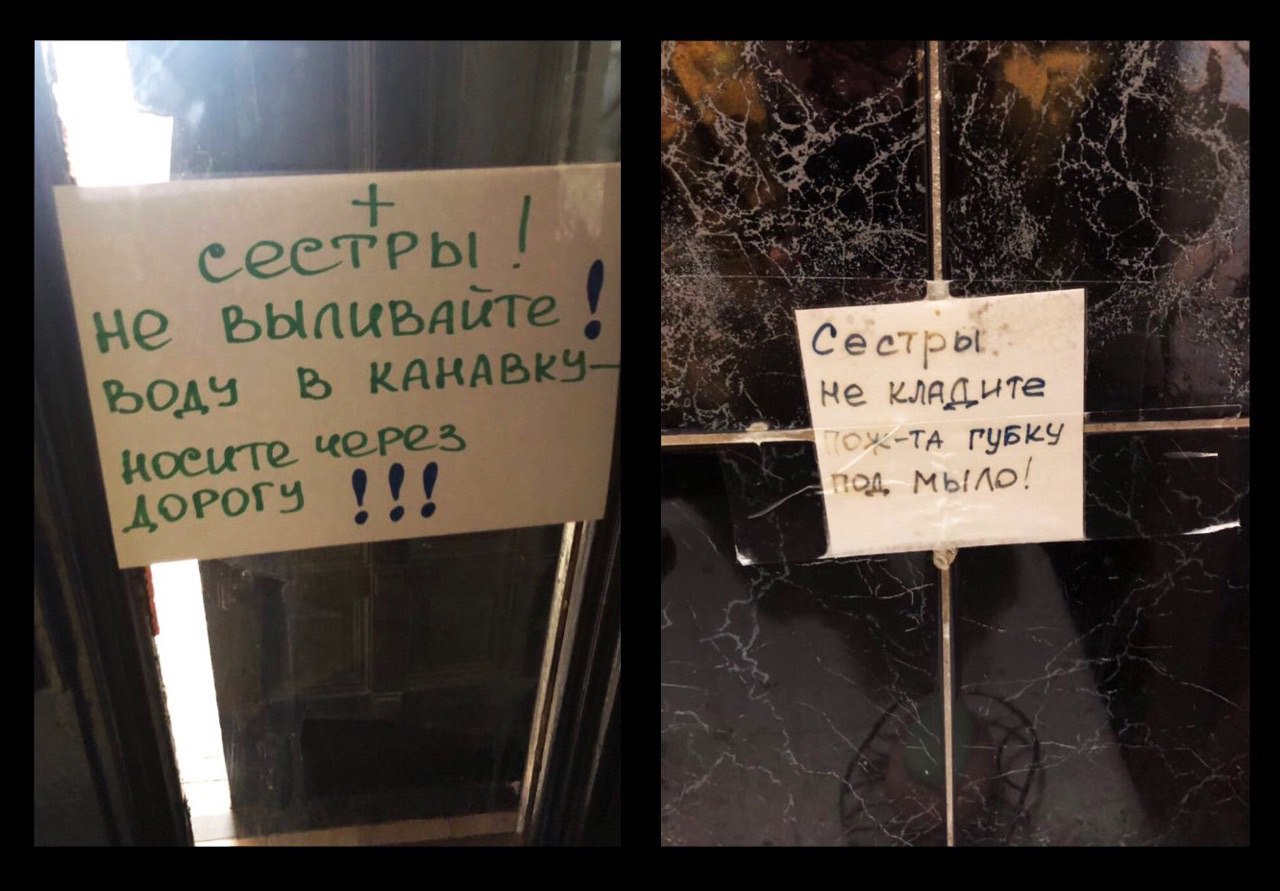 +
сестры!
не выливайте!
воду в канавку—
носите через
дорогу !!!
Сестры
не кладите
пож-та губку
под мыло!